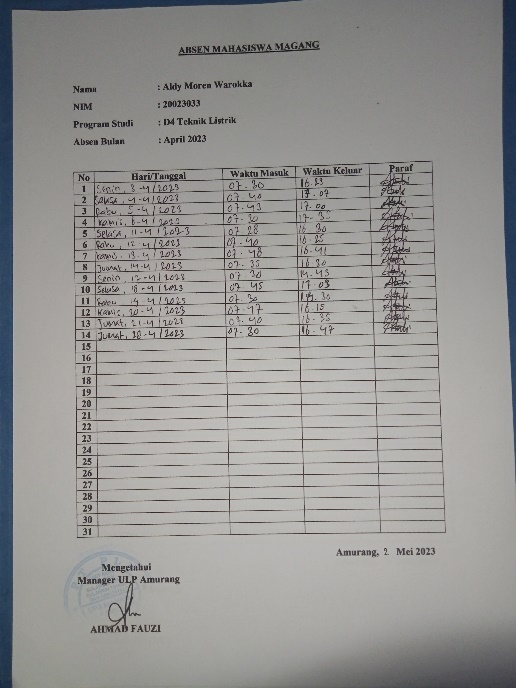 ABSEN MAHASISWA MAGANG
Nama : Aldy Moren Warokka
NIM : 20023033
Program Studi : D4 Teknik Listrik
Absen Bulan : April 2023
No Hari/Tanggal Waktu Masuk Waktu Keluar Paraf
1 Senin, 3-4/2023 07.30 16.23
2 Selasa, 4-4/2023 07.40 17.07
3 Rabu, 5-4/2023 07.43 17.00
4 Kamis, 6-4/2023 07.30 17.35
5 Selasa, 11-4/2023 07.28 16.30
6 Rabu, 12-4/2023 07.40 16.25
7 Kamis, 13-4/2023 07.48 16.41
8 Jumat, 14-4/2023 07.35 16.30
9 Senin, 17-4/2023 07.30 14.43
10 Selasa, 18-4/2023 07.45 17.03
11 Rabu, 19-4/2023 07.30
12 Kamis, 20-4/2023 07.47 16.15
13 Jumat, 21-4/2023 07.40 16.35
14 Jumat, 28-4/2023 07.30 16.47
15
16
17
18
19
20
21
22
23
24
25
26
27
28
29
30
31
Amurang, 2 Mei 2023
Mengetahui
Manager ULP Amurang
AHMAD FAUZI